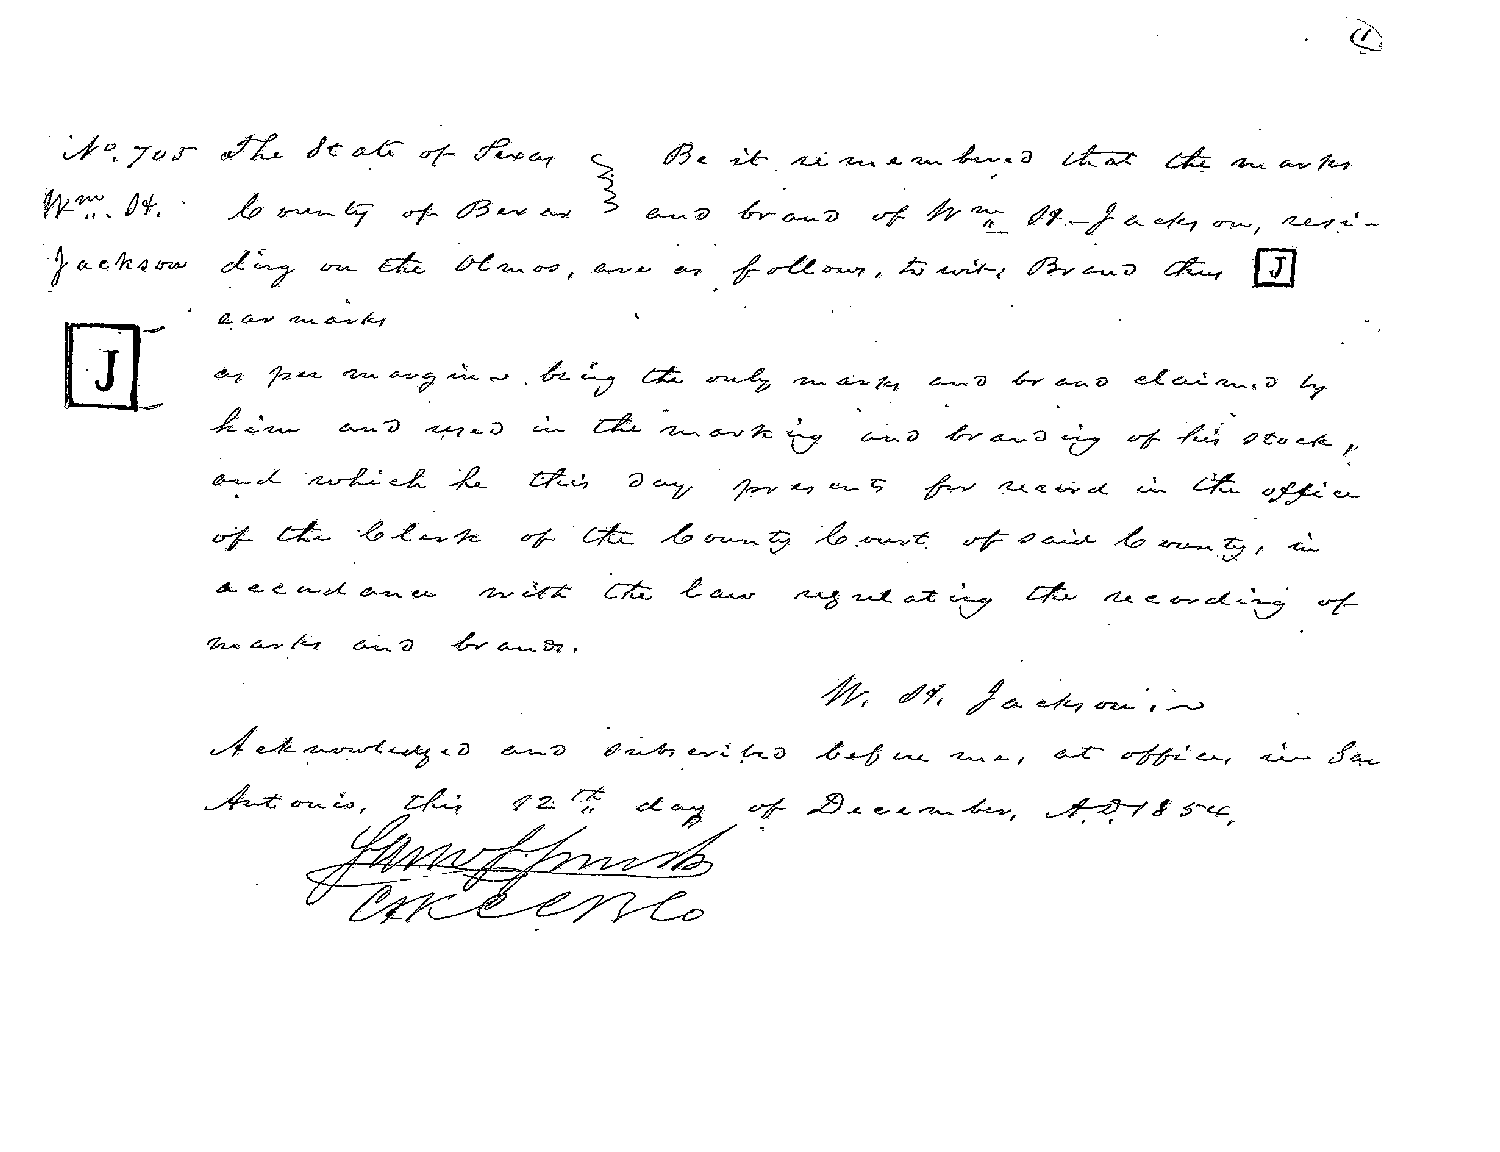 No. 705 The State of Texas } Be it remembered that the marks
Wm. H. County of Bexar } and brand of Wm H. Jackson, resi-
Jackson ding on the Olmos, are as follows, to wit: Brand thus J
ear marks
J
as per margin being the only marks and brand claimed by
him and used in the marking and branding of his stock,
and which he this day presents for record in the office
of the Clerk of the County Court of said County, in
accordance with the law regulating the recording of
marks and brands.
W. H. Jackson
Acknowledged and subscribed before me, at office, in San
Antonio, this 12th day of December, A.D. 1854.